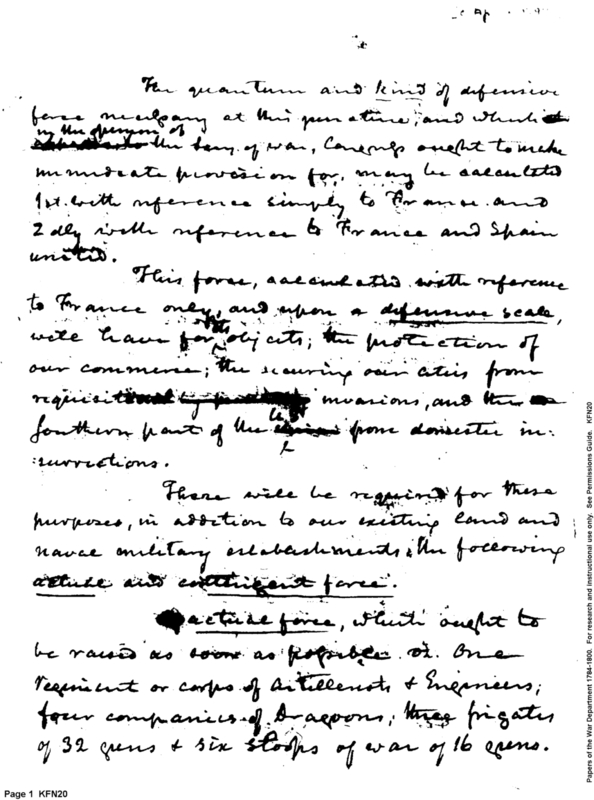 The quantum and kind of defensive
force necessary at this juncture, and which
in the opinion of
the Secy. of war, Congress ought to make
immediate provision for, may be calculated
1st. with reference simply to France and
2dly with reference to France and Spain
united.
This force, calculated with reference
to France only, and upon a defensive scale,
will have for its objects; the protection of
our commerce; the securing our cities from
requisit invasions, and the
Southern part of the U S from domestic in:
:surrections.
There will be required for these
purposes, in addition to our existing land and
naval military establishments, the following
actual and contingent force.
actual force, which ought to
be raised as soon as possible. vz. One
regiment or corps of Artillerists & Engineers;
four companies of Dragoons; three frigates
of 32 guns & six sloops of war of 16 guns.
Page 1 KFN20
Papers of the War Department 1784-1800. For research and instructional use only. See Permissions Guide. KFN20